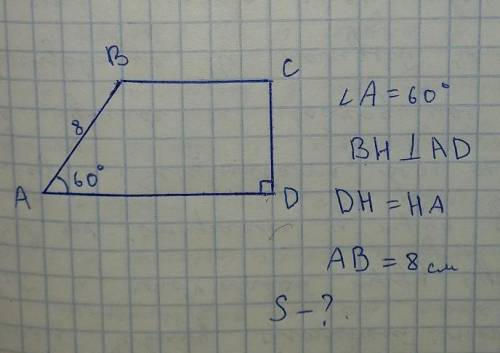 B
C
8
60°
A
D
∠A = 60°
BH ⊥ AD
DH = HA
AB = 8 см
S - ?